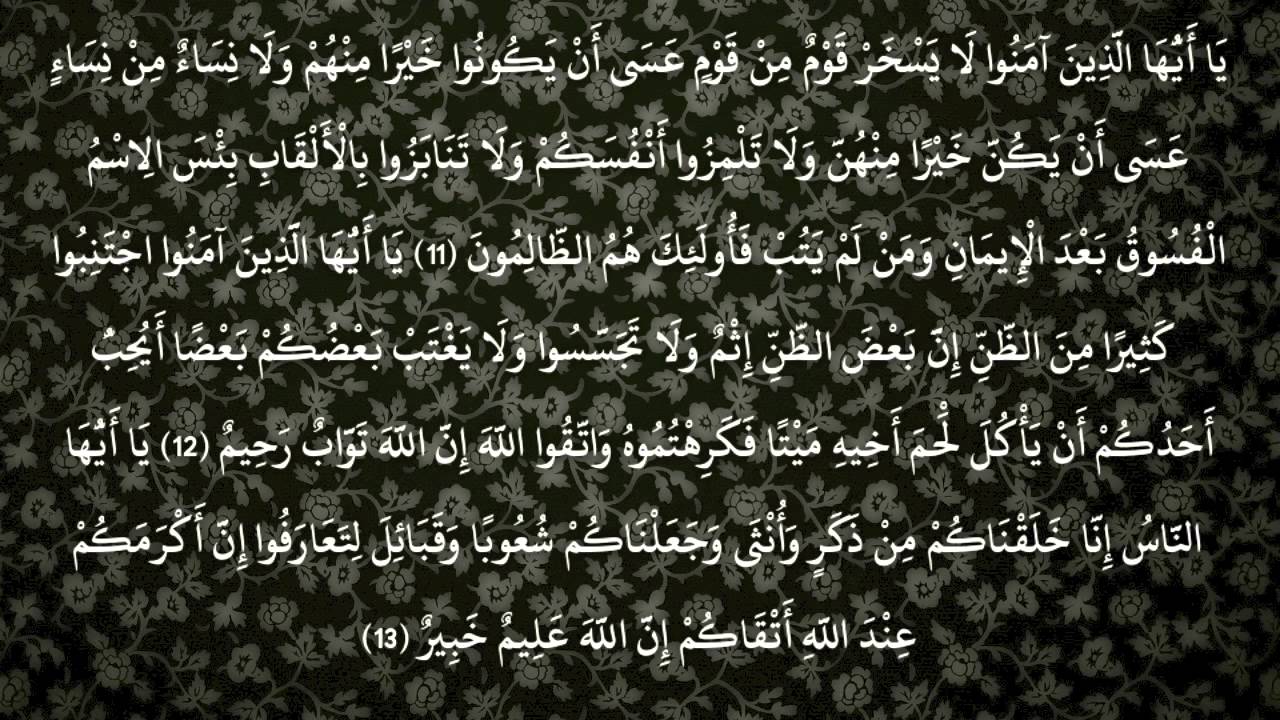 يَا أَيُّهَا الَّذِينَ آمَنُوا لَا يَسْخَرْ قَوْمٌ مِنْ قَوْمٍ عَسَى أَنْ يَكُونُوا خَيْرًا مِنْهُمْ وَلَا نِسَاءٌ مِنْ نِسَاءٍ
عَسَى أَنْ يَكُنَّ خَيْرًا مِنْهُنَّ وَلَا تَلْمِزُوا أَنْفُسَكُمْ وَلَا تَنَابَزُوا بِالْأَلْقَابِ بِئْسَ الِاسْمُ
الْفُسُوقُ بَعْدَ الْإِيمَانِ وَمَنْ لَمْ يَتُبْ فَأُولَئِكَ هُمُ الظَّالِمُونَ (11) يَا أَيُّهَا الَّذِينَ آمَنُوا اجْتَنِبُوا
كَثِيرًا مِنَ الظَّنِّ إِنَّ بَعْضَ الظَّنِّ إِثْمٌ وَلَا تَجَسَّسُوا وَلَا يَغْتَبْ بَعْضُكُمْ بَعْضًا أَيُحِبُّ
أَحَدُكُمْ أَنْ يَأْكُلَ لَحْمَ أَخِيهِ مَيْتًا فَكَرِهْتُمُوهُ وَاتَّقُوا اللَّهَ إِنَّ اللَّهَ تَوَّابٌ رَحِيمٌ (12) يَا أَيُّهَا
النَّاسُ إِنَّا خَلَقْنَاكُمْ مِنْ ذَكَرٍ وَأُنْثَى وَجَعَلْنَاكُمْ شُعُوبًا وَقَبَائِلَ لِتَعَارَفُوا إِنَّ أَكْرَمَكُمْ
عِنْدَ اللَّهِ أَتْقَاكُمْ إِنَّ اللَّهَ عَلِيمٌ خَبِيرٌ (13)